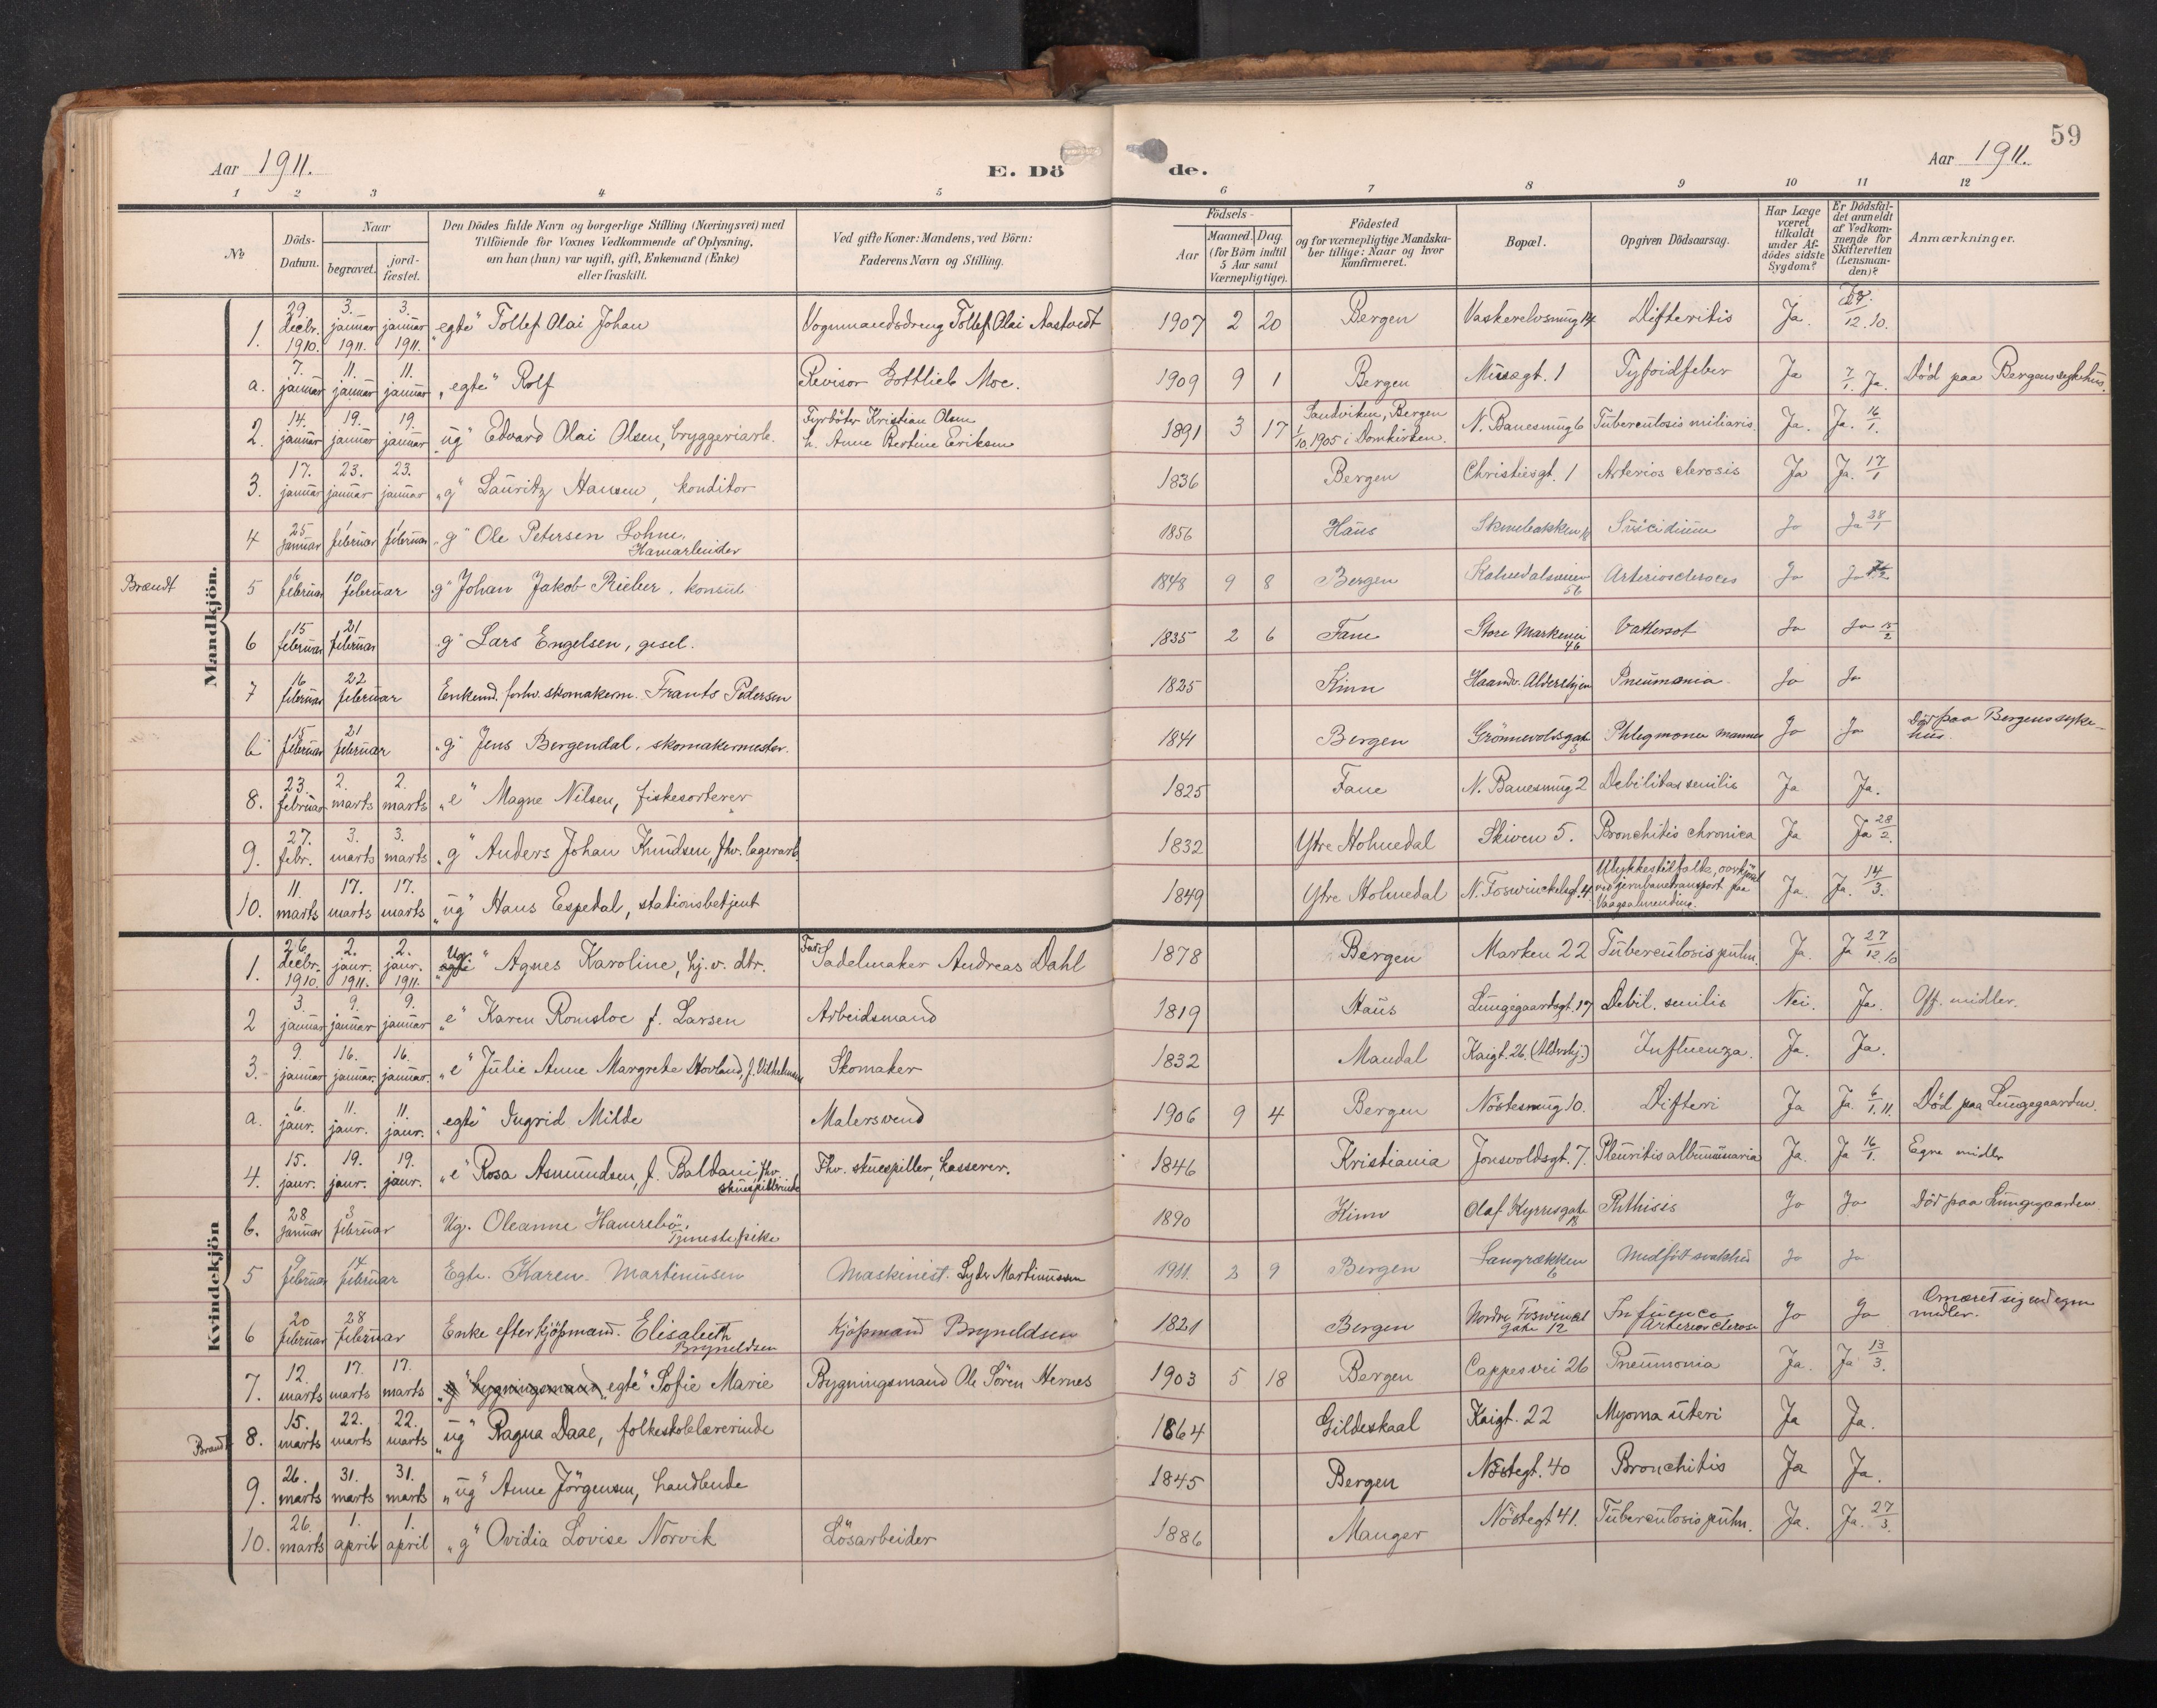 59
Aar 1911.
E. Dö
de.
Aar 1911.
1 2 3 4 5 6 7 8 9 10 11 12
No
Döds-
Datum.
Naar
begravet.
jord-
fæstet.
Den Dödes fulde Navn og borgerlige Stilling (Næringsvei) med
Tilföiende for Voxnes Vedkommende af Oplysning,
om han (hun) var ugift, gift, Enkemand (Enke)
eller fraskilt.
Ved gifte Koner: Mandens, ved Börn:
Faderens Navn og Stilling.
Födsels-
Aar
Maaned. Dag.
(for Börn indtil
5 Aar samt
Værnepligtige).
Födested
og for værnepligtige Mandska-
ber tillige: Naar og hvor
konfirmeret.
Bopæl.
Opgiven Dödsaarsag.
Har Læge
været
tilkaldt
under Af-
dödes sidste
Sygdom?
Er Dödsfal-
det anmeldt
af Vedkom-
mende for
Skifteretten
(Lensman-
den)?
Anmærkninger.
Mandkjön.
1. 29. decbr. 1910. 3. januar 1911. 3. januar 1911. "egte" Tollef Olai Johan Vognmandsdreng Tollef Olai Aastvedt 1907 2 20 Bergen Vaskerelvsmug 14 Difteritis Ja. 12.10.
a. 7. januar 11. januar 11. januar "egte" Rolf Revisor Gottlieb Moe. 1909 9 1 Bergen Musegt. 1 Tyfoidfeber Ja 7/1. Ja. Död paa Bergens sykehus.
2. 14. januar 19. januar 19. januar "ug" Edvard Olai Olsen, bryggeriarb. Fyrböter Kristian Olsen
h. Anne Bertine Eriksen 1891 3 17 Sandviken, Bergen
1/10.1905 i Domkirken. N. Banesmug 6 Tuberculosis miliaris. Ja. Ja. 16/1.
3. 17. januar 23. januar 23. januar "g" Lauritz Hansen, konditor 1836 Bergen Christiesgt. 1 Arterios clerosis Ja Ja. 17/1
4 25 januar 1 februar 1 februar "g" Ole Petersen Lohne.
Havnarbeider 1856 Haus Suicidium Ja Ja 28/1
Brændt 5 6 februar 10 februar "g" Johan Jakob Rieber, konsul 1848 9 8 Bergen Kalvedalsveien
56 Arteriosclerosis Ja Ja
6 15 februar 21 februar "g" Lars Engelsen, gisel. 1835 2 6 Fane Store Markevei
46 Vattersot Ja Ja 15/2
7 16 februar 22 februar Enkemd. forhv. skomakerm. Frants Pedersen 1825 Kinn Haandv. Alderskjem Pneumonia Ja Ja
b 15 februar 21 februar "g" Jens Bergendal, skomakermester. 1841 Bergen Grönnevoldsgate
3 Phlegmone mannes Ja Ja Död paa Bergens syke-
hus.
8. 23. februar 2. marts 2. marts "e" Magne Nilsen, fiskesorterer 1825 Fane N. Banesmug 2 Debilitas senilis Ja Ja.
9. 27. febr. 3. marts 3. marts "g" Anders Johan Knudsen, fhv. lagerarb. 1832 Ytre Holmedal Skiven 5. Bronchitis chronica Ja Ja 28/2.
10. 11. marts 17. marts 17. marts "ug" Hans Espedal, stationsbetjent 1849 Ytre Holmedal N. Foswinckelsgt. 4. Ulykkestilfælde, overkjört
ved jernbanetransport paa
Vaagsalmending. Ja. Ja. 14/3.
Kvindekjön
1. 26. decbr. 1910. 2. janr. 1911. 2. janr. 1911. Ug. "egte" Agnes Karoline, hj. v. dtr. Far: Sadelmaker Andreas Dahl 1878 Bergen Marken 22 Tuberculosis pulm. Ja. Ja 27/12.10
2 3. januar 9. januar 9. januar "e" Karen Romsloe f. Larsen Arbeidsmand 1819 Haus Lungegaardsgt. 17 Debil. senilis Nei. Ja. Off. midler.
3. 9. januar 16. januar. 16. januar. "e" Julie Anne Margrete Hovland, f. Vilhelmsen Skomaker 1832 Mandal Kaigt. 26. (Alderhj.) Influenza. Ja. Ja.
a. 6. janr. 11. janr. 11. janr. "egte" Ingrid Milde Malersvend 1906 9 4 Bergen Nöstesmug 10. Difteri Ja Ja. 6/1.11. Död paa Lungegaarden.
4. 15. janr. 19. janr. 19. janr. "e" Rosa Asmundsen, f. Baldani, fhv.
skuespillerinde Fhv. skuespiller, kasserer. 1846 Kristiania Jonsvoldsgt. 7. Pleuritis albuminaria Ja. Ja 16/1. Egne midler
b. 28 januar 3 februar Ug. Oleanne Hamrebö.
Tjenestepike 1890 Kinn Olaf Kyrresgate
18 Phthisis Ja Ja Död paa Lungegaarden
5 9 februar 14 februar Egte. Karen. Martinusen Maskinist. Lyder Martinussen 1911. 2 9 Bergen Langrækken
6 Medfödt svakhed Ja Ja
6 20 februar 28 februar Enke efter kjöpmand. Elisabeth
Bryneldsen Kjöpmand Bryneldsen 1821 Bergen Nordre Foswinckel
gate 12 Influenca
Arteriosclerose Ja Ja midler.
7. 12. marts 17. marts 17. marts "g" bygningsmand, "egte" Sofie Marie Bygningsmand Ole Sören Hernes 1903 5 18 Bergen Cappes vei 26 Pneumonia Ja. Ja 13/3.
Brændt 8. 15. marts 22. marts 22. marts "ug" Ragna Daae, folkeskolelærerinde 1864 Gildeskaal Kaigt. 22 Myoma uteri Ja Ja.
9. 26. marts 31. marts 31. marts "ug" Anne Jörgensen, handlende 1845 Bergen Nöstegt. 40 Bronchitis Ja Ja.
10. 26. marts 1. april 1. april "g" Ovidia Lovise Norvik Lösarbeider 1886 Manger Nöstegt 41. Tuberculosis pulm. Ja. Ja. 27/3.